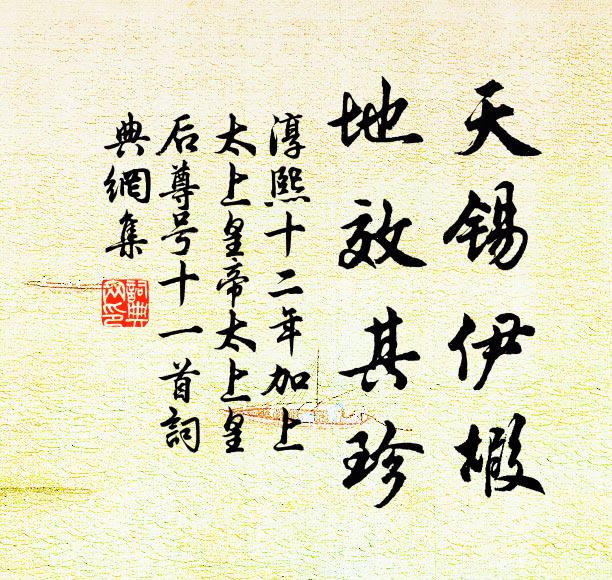 天锡伊椵
地效其珍
淳熙十二年加上
太上皇帝太上皇
后尊号十一首詞
典網集
詞典
网印